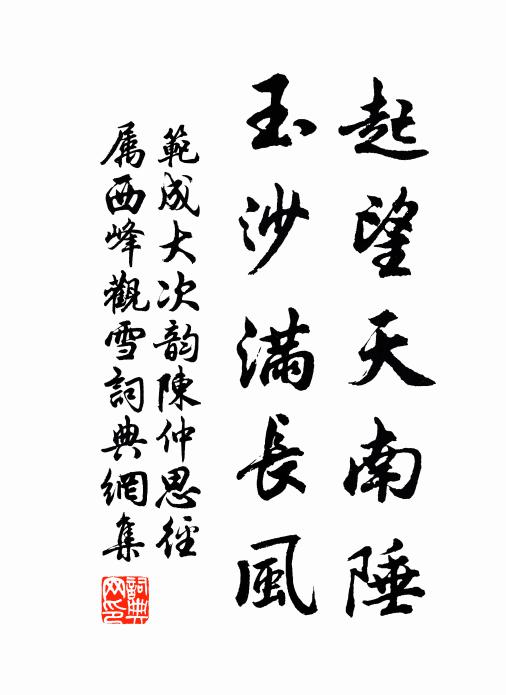 起望天南陲
玉沙滿長風
範成大次韵陳仲思徑
属西峰觀雪詞典網集